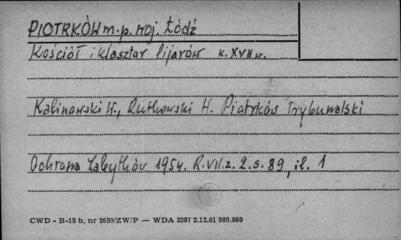 PIOTRKÓW m.p. woj. Łódź
Kościół i klasztor Pijarów k. XVII w.
Kalinowski W., Rutkowski H. Piotrków Trybunalski
Ochrona Zabytków 1954. R.VII.z. 2. s. 89, il. 1
CWD - B-15 b, nr 2659/ZW/P — WDA 3287 2.12.61 989.000